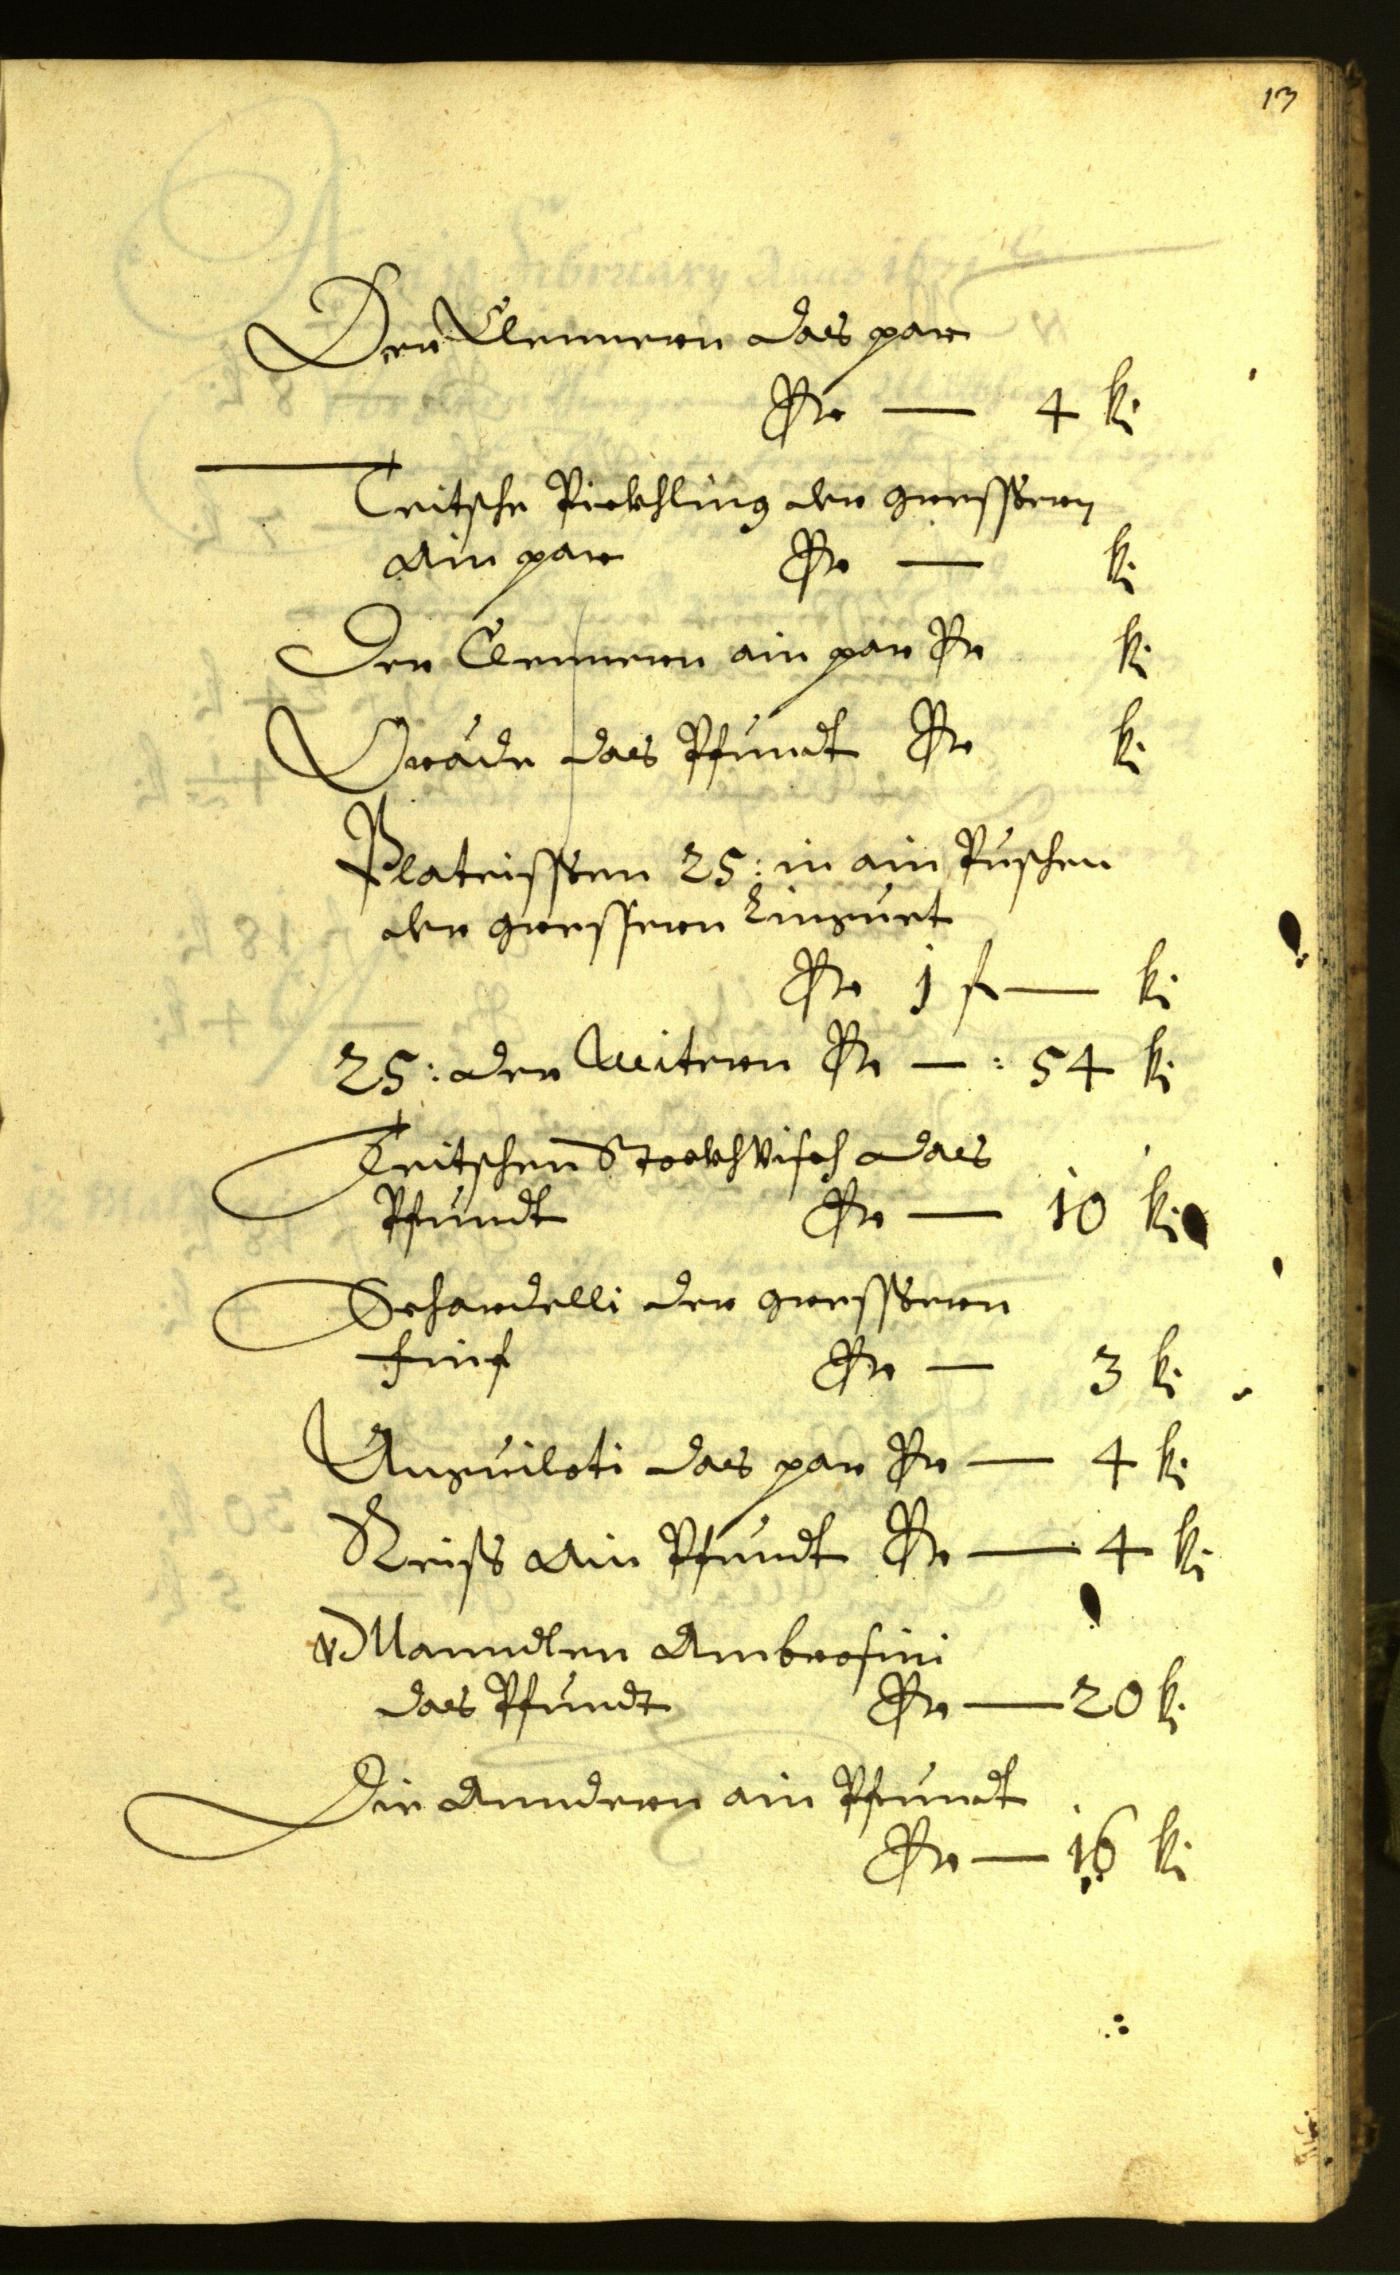 13
Der Clennern das par
Per — 4 kr
Teitsche Pickhling der gressern
Ain par Per — kr
Der Clennern ain par Per kr
Das Pfundt Per kr
Plateissen 25: in ain Puschen
der gressern
Per 1 f — kr
25: der Mitern Per — : 54 kr
Teitschen Stockhvisch das
Pfundt Per — 10 kr
Schardelli der gressern
finf Per — 3 kr
Anguiloti das par Per — 4 kr
Reiß Ain Pfundt Per — 4 kr
Manndlen Ambrosini
das Pfundt Per — 20 kr
Die Anndern ain Pfundt
Per — 16 kr